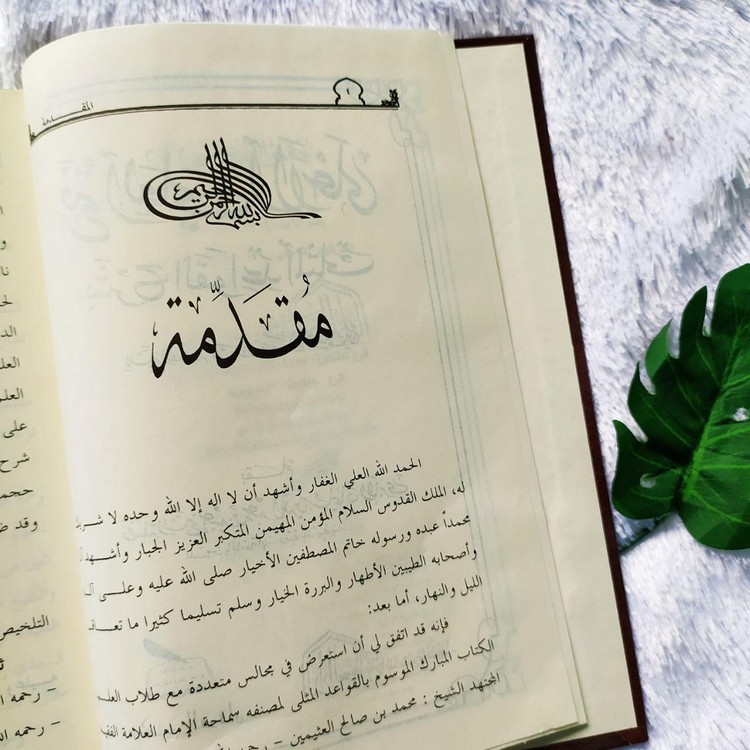 المقدمة
١
بسم الله الرحمن الرحيم
مُقَدِّمَة
الحمد الله العلي الغفار وأشهد أن لا اله إلا الله وحده لا شريك
له، الملك القدوس السلام المؤمن المهيمن المتكبر العزيز الجبار وأشهد
محمداً عبده ورسوله خاتم المصطفين الأخيار صلى الله عليه وعلى
وأصحابه الطيبين الأطهار والبررة الخيار وسلم تسليما كثيرا ما
الليل والنهار، أما بعد:
فإنه قد اتفق لي أن استعرض في مجالس متعددة مع طلاب العلم
الكتاب المبارك الموسوم بالقواعد المثلى لمصنفه سماحة الإمام العلامة
المجتهد الشيخ : محمد بن صالح العثيمين - رحمه الله
العلم
على
شرح
حجمه
وقد
التلخيص
- رحمه
- رحمه الله